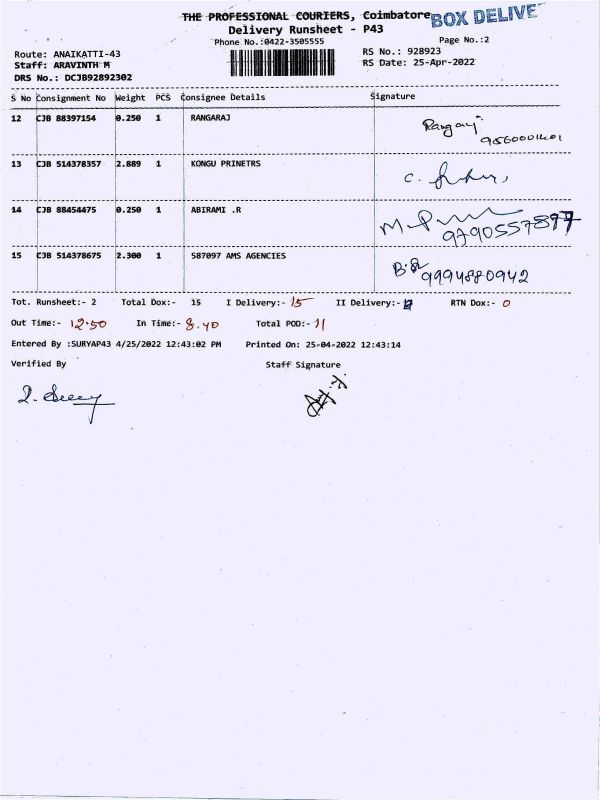 THE PROFESSIONAL COURIERS, Coimbatore
BOX DELIVE
Delivery Runsheet - P43
Phone No.:0422-3505555
Page No.:2
Route: ANAIKATTI-43
RS No.: 928923
Staff: ARAVINTH M
RS Date: 25-Apr-2022
DRS No.: DCJB92892302
S No Consignment No Weight PCS Consignee Details Signature
12 CJB 88397154 0.250 1 RANGARAJ
13 CJB 514378357 2.889 1 KONGU PRINETRS
14 CJB 88454475 0.250 1 ABIRAMI .R
15 CJB 514378675 2.300 1 587097 AMS AGENCIES
9994880942
Tot. Runsheet:- 2 Total Dox:- 15 I Delivery:- 15 II Delivery:- RTN Dox:- 0
Out Time:- 12.50 In Time:- 8.40 Total POD:- 11
Entered By :SURYAP43 4/25/2022 12:43:02 PM Printed On: 25-04-2022 12:43:14
Verified By Staff Signature